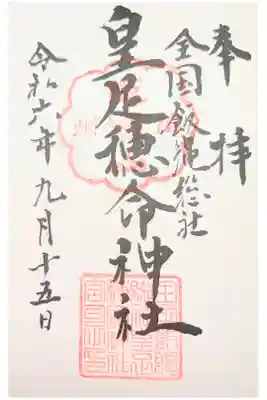 奉拝
全国飯縄総社
皇足穂命神社
令和六年九月十五日